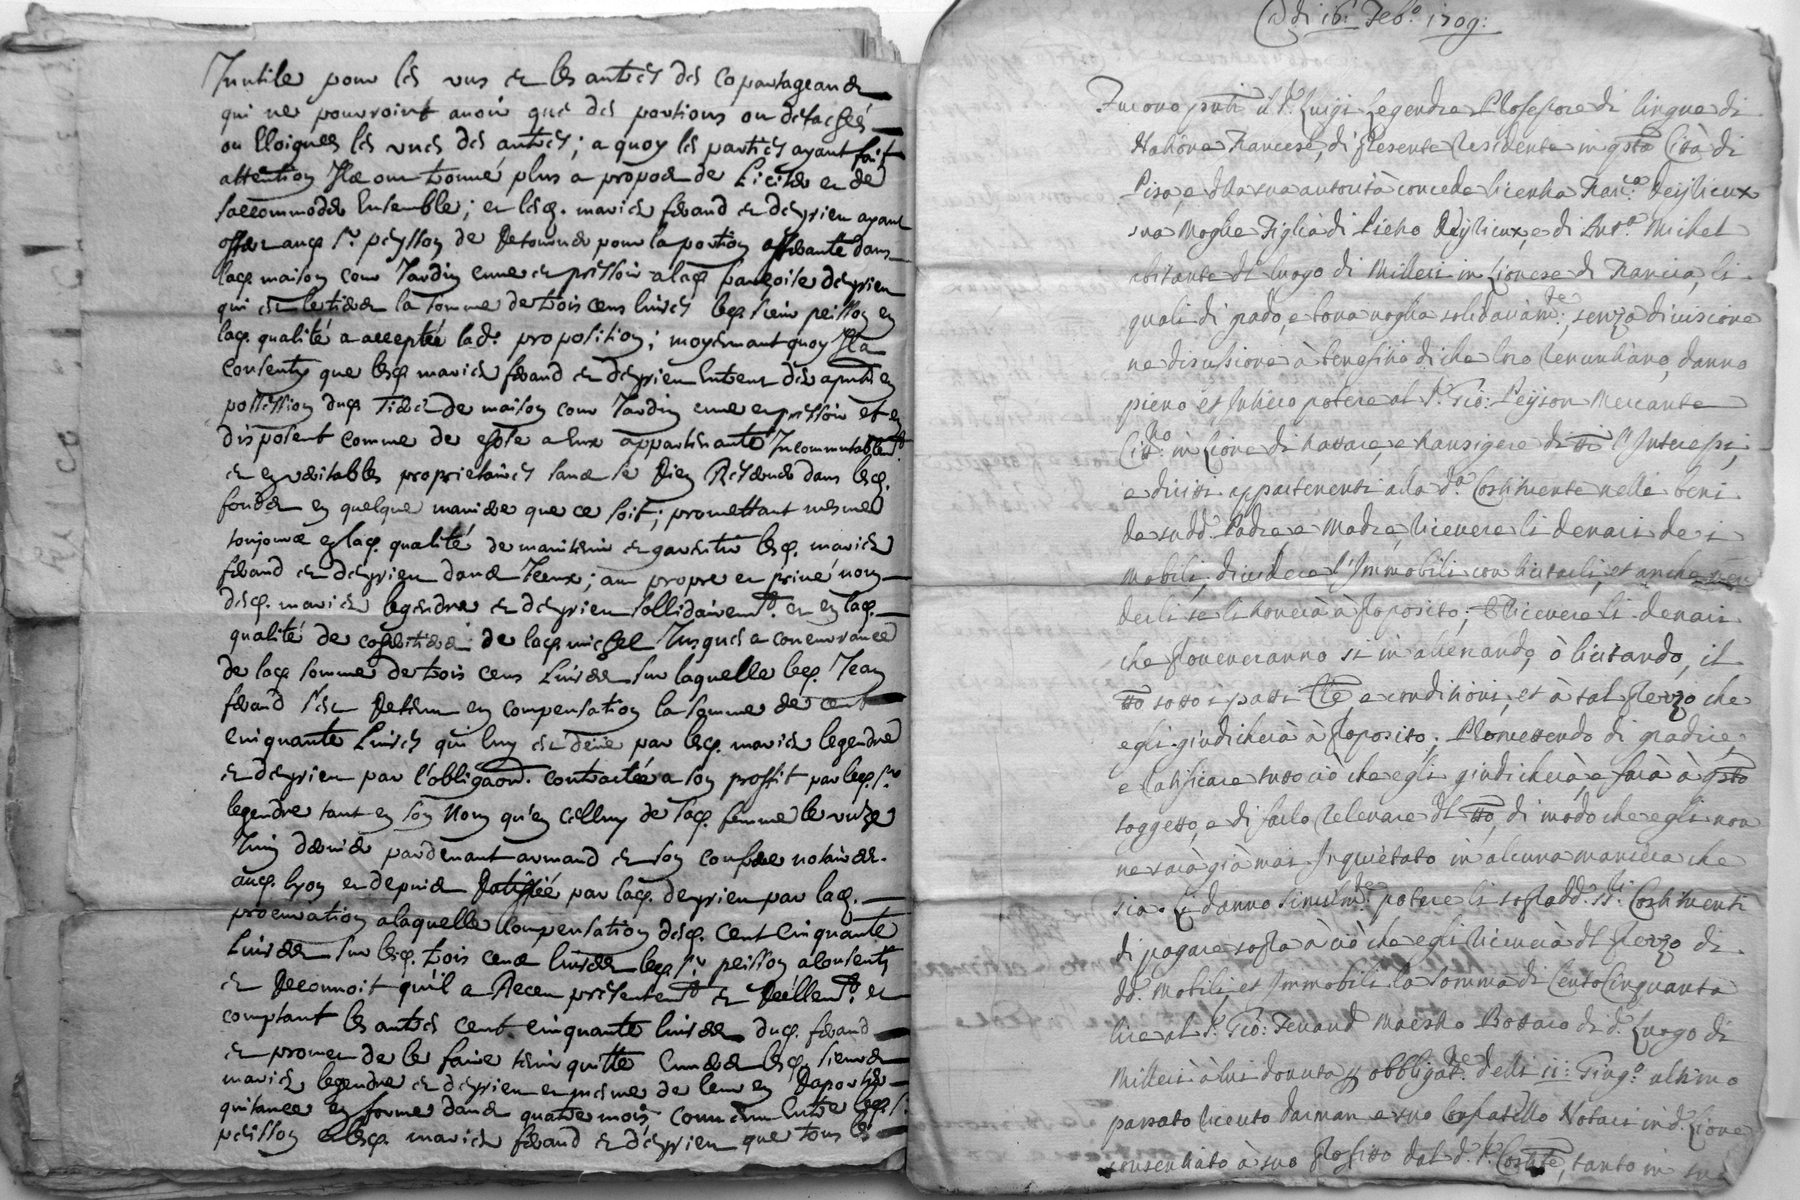 Inutiles pour les uns et les autres des copartageans
qui ne pourroint auoir que des portions ou detachés
ou Eloignees les unes des autres; a quoy les parties ayant fait
attention Ils ont trouué plus a propos de Liciter et de
saccommoder Ensemble; et lesd. mariés feraud et deyrieu ayant
offert aud. Sr. peysson de pour la portion afferante dans
lad. maison cour Jardin cuue et pressoir a lad. francoise deyrieu
qui est le tiers la somme de trois cens liures led. sieur peisson en
lad. qualité a acceptée lad. proposition; moyennant quoy Il a
consenty que lesd. mariés feraud et deyrieu Entrent des apresent en
possession dud. tiers de maison cour Jardin cuue et pressoir et en
disposent comme de chose a Eux appartenante Incommutablemt.
et en veritables proprietaires sans se rien Reseruer dans lesd.
fonds en quelque maniere que ce soit; promettant mesme
toujours en lad. qualité de maintenir et garentir lesd. mariés
feraud et deyrieu dans Iceux; au propre et priué nom
desd. mariés legendre et deyrieu sollidairemt. et en lad.
qualité de coheritiere de lad. michel Jusques a concurrance
de lad. somme de trois cens Liures sur laquelle led. Jean
feraud s'est Retenu en compensation la somme de cent
cinquante Liures qui luy est deüe par lesd. mariés legendre
et deyrieu par l'obligaon. contractée a son proffit par led. Sr.
legendre tant en son Nom qu'en celluy de sad. femme le unze
Juin dernier pardeuant armand et son confrere notaires
aud. lyon et depuis Ratiffiée par lad. deyrieu par lad.
procuration a laquelle Compensation desd. cent cinquante
Liures sur lesd. trois cens liures led. Sr. peisson a consenty
et Reconnoit qu'il a Receu presentemt. et Reëllemt. et
comptant les autres cent cinquante liures dud. feraud
et promet de le faire tenir quitte Enuers lesd. sieurs
mariés legendre et deyrieu et mesme de leur en Raporter
quitance en forme dans quatre mois conuenu Entre led. Sr.
peisson et lesd. mariés feraud et deyrieu que tous les
Adi 16: Feb.o 1709:
Furono pnti il Sr. Luigi Legendre Professore di lingua di
Nahone Francese, di Presente Residente in qsta Città di
Pisa, e dlla sua autorità concede licenha Franca. Deijlieux
sua Moglie Figlia di Pietro Deijlieux, e di Anta. Michel
abitante dl luogo di Milleri in Lionese di Francia, li
quali di grado, e bona voglia solidariamte: senza diuisione
ne discussione à benefitio di che loro renunhiano, danno
pieno et Intiero potere al Sr. Gio: Peijson Mercante
Cittno: in Lione di trattare, e transigere di tti l'Interessi,
e diritti appartenenti alla da. Costituente nelli beni
da sudd. Padre e Madre, riceuere li denari de i
Mobili, diuidere l'Immobili con licitarli, et anche ven
derli se li trouerà à Proposito; E riceuere li denari
che Proueranno si in alienando, ò licitando, il
tto sotto i patti Ple, e condihioni, et à tal Prezzo che
egli giudicherà à Proposito; Promettendo di gradire,
e ratificare tutto ciò che egli giudicherà, e farà à qsto
soggetto, e di farlo releuare dl tto, di modo che egli non
ne sarà già mai Inquietato in alcuna maniera che
sia. E danno similmte. potere li sopradd. Sri. Costituenti
di pagare sopra à ciò che egli riceuerà dl Prezzo di
dd. Mobili, et Immobili la somma di Cento Cinquanta
lire al Sr. Gio: Feraud Maestro Bottaro di d. Luogo di
Milleri à lui douuta p obbligatne. delli 11: Giugo. ultimo
passato riceuto darman e suo Confratello Notari in d. Lione
consentiato à suo Profitto dal d. Sr. Costte, tanto in suo